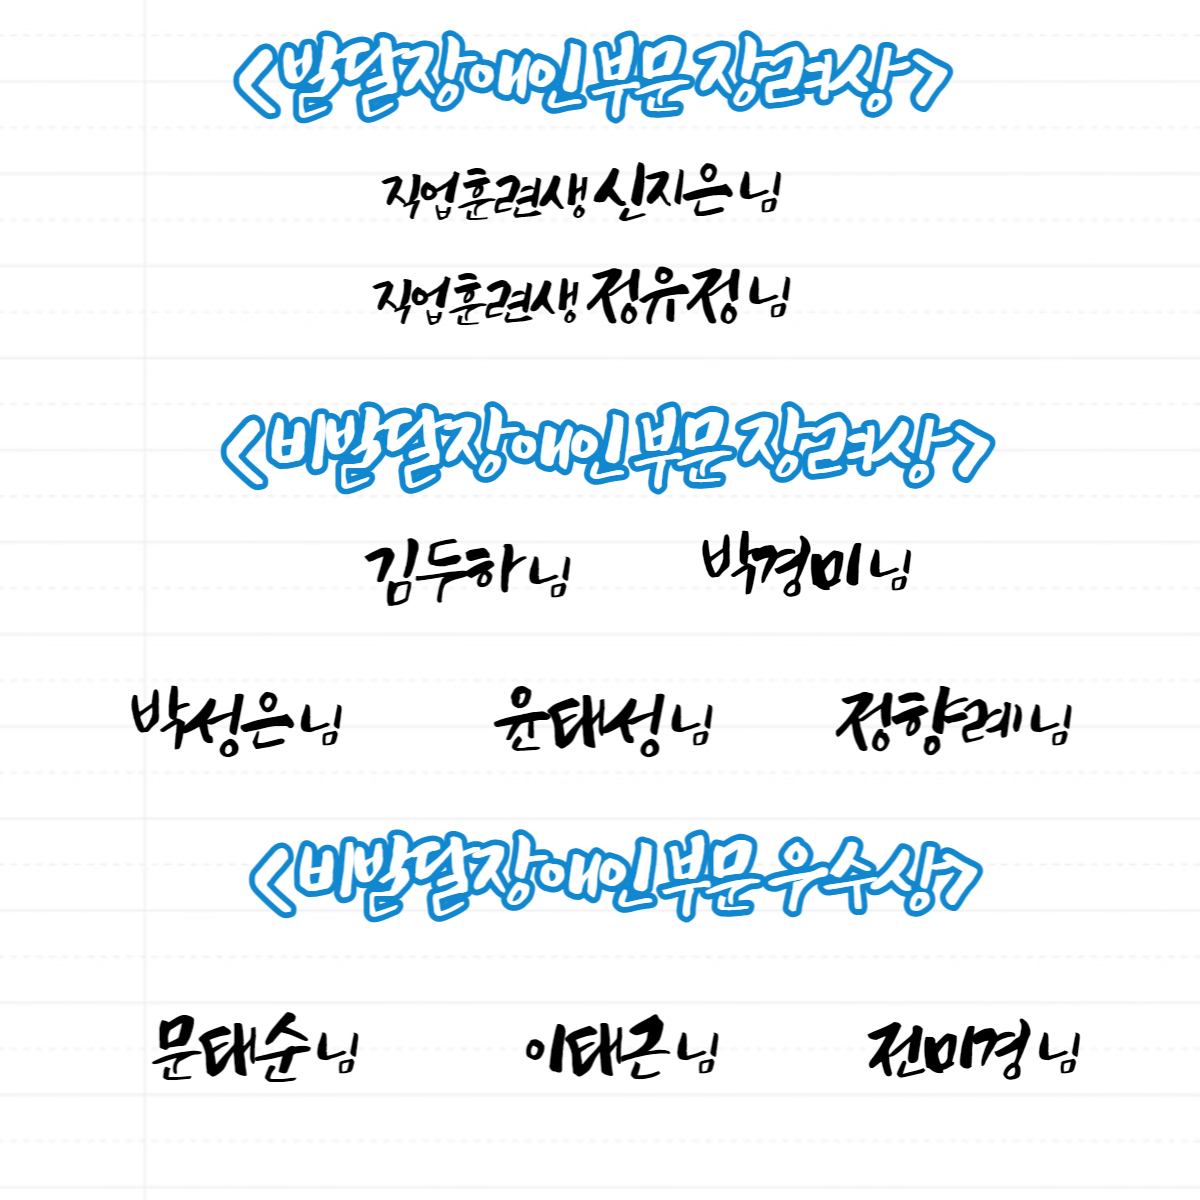 <발달장애인부문 장려상>
직업훈련생 신지은 님
직업훈련생 정유정 님
<비발달장애인 부문 장려상>
김두하 님 박경미 님
박성은 님 윤태성 님 정향례 님
<비발달장애인 부문 우수상>
문태순 님 이태근 님 전미경 님